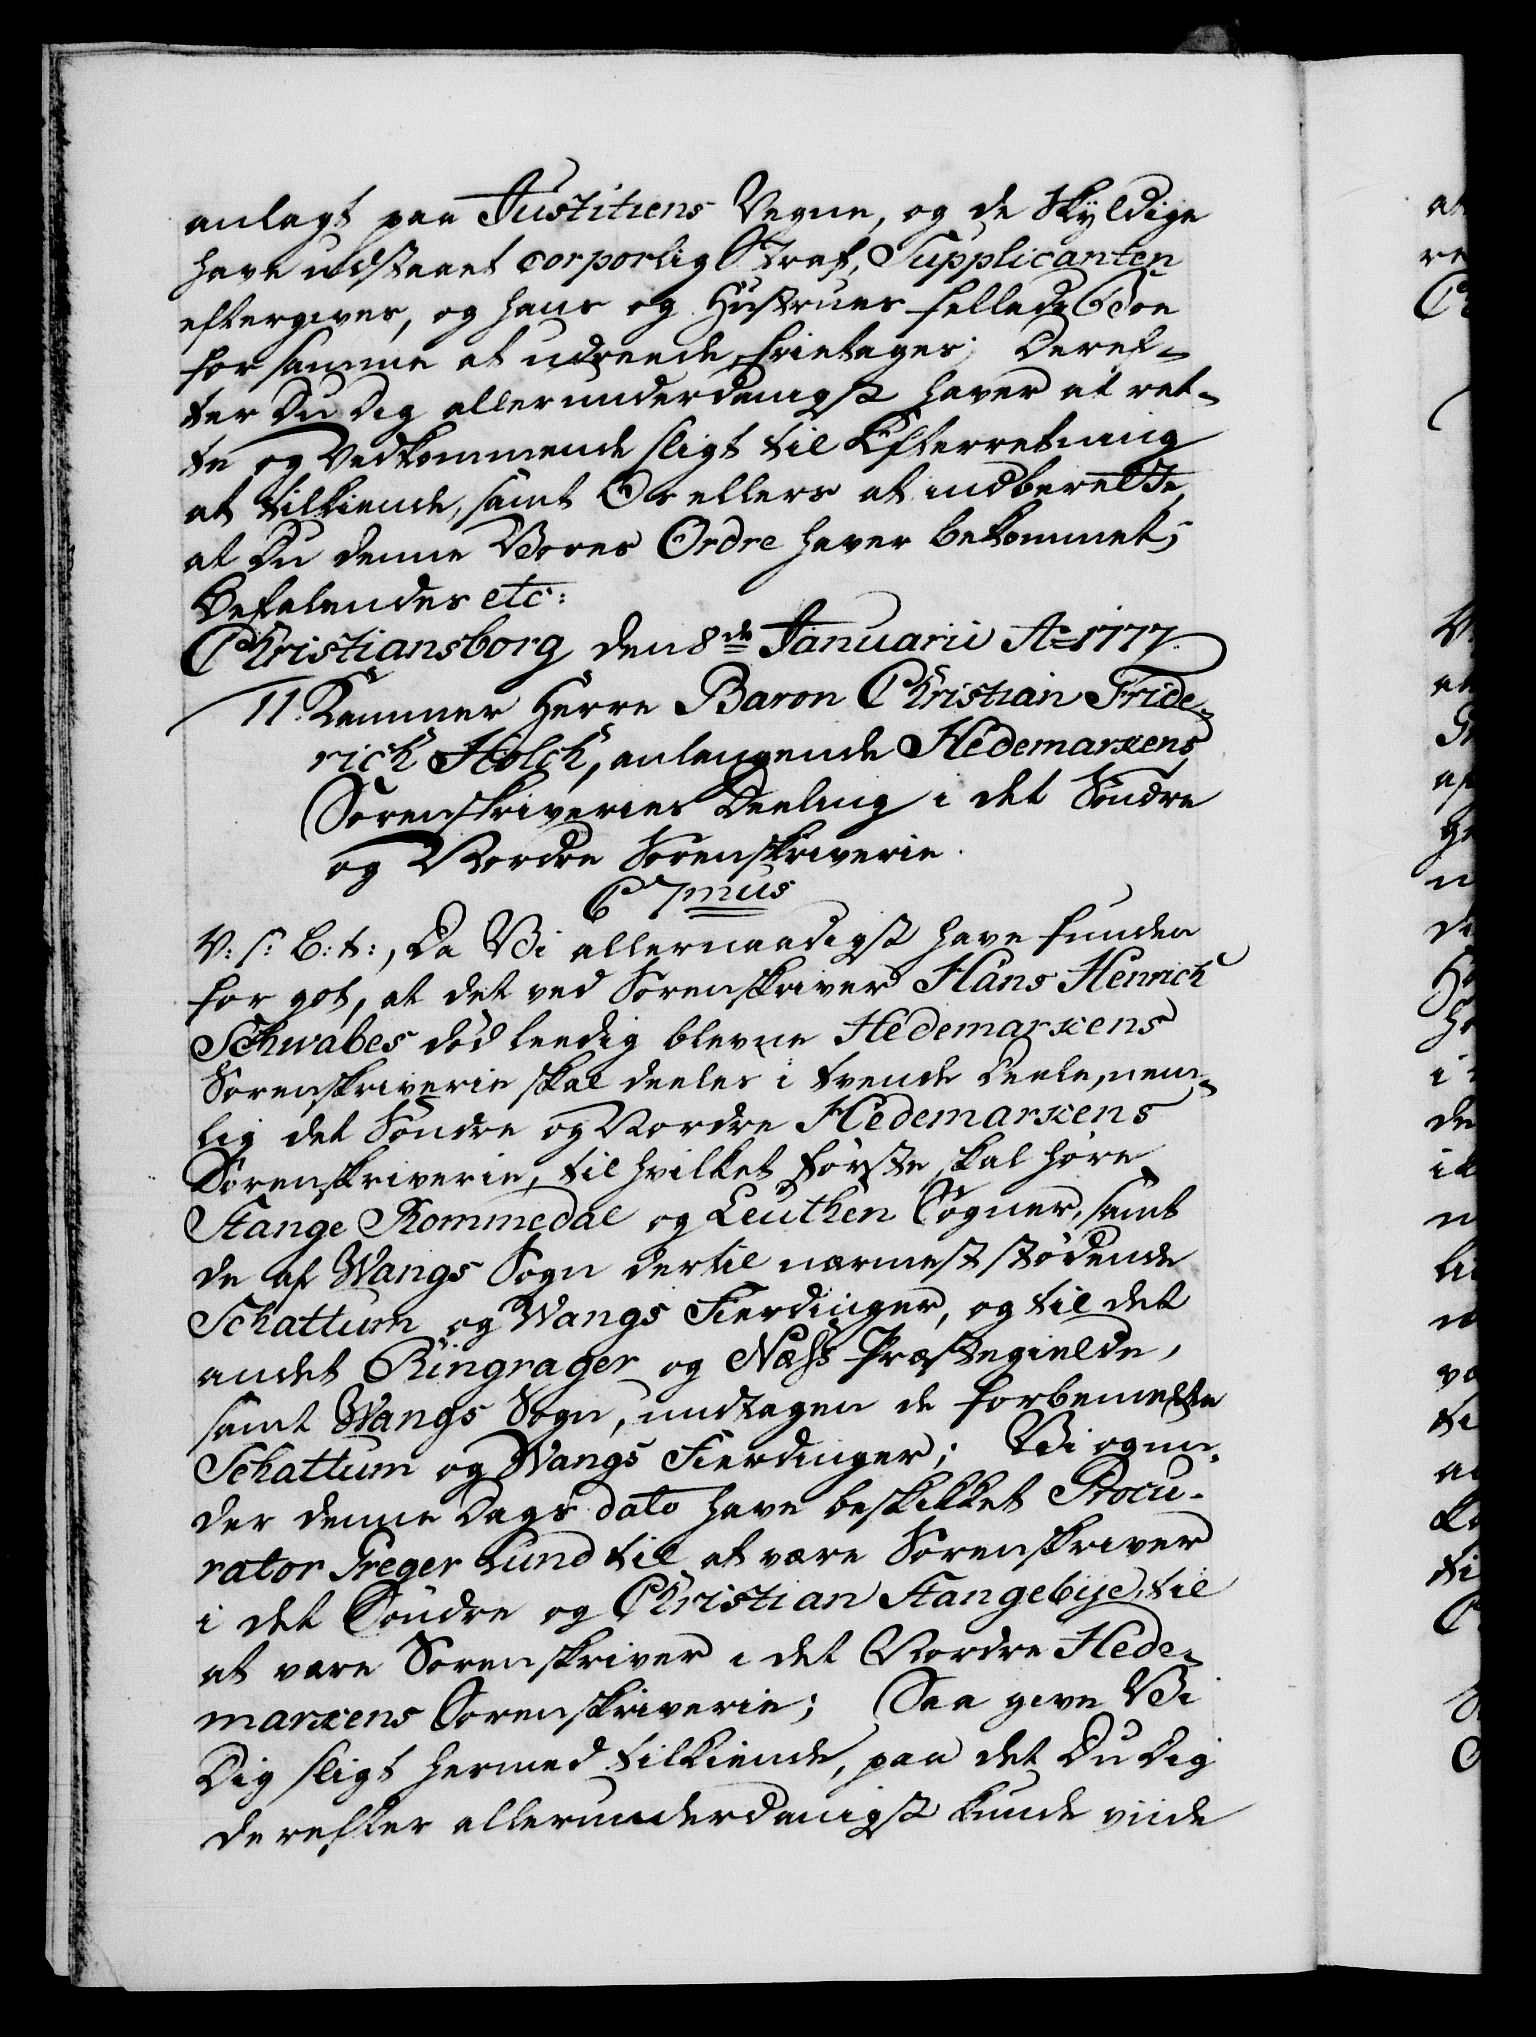 anlagt paa Justitiens Vegne, og de Skyldige
have udstaaet corporlig Straf, Supplicanten
eftergives, og hans og Hustrues fælleds Boe
for samme at udreede, frietages; Deref-
ter Du Dig allerunderdanigst haver at ret-
te og Vedkommende sligt til Efterretning
at tilkiende, samt Os ellers at indberette,
at Du denne Vores Ordre haver bekommet;
Befalendes etc:
Christiansborg den 8de Januarii Ao 1777.
11. Kammer Herre Baron Christian Fride-
rich Holck, anlangende Hedemarkens
Sorenskriveries Deeling i det Søndre
og Nordre Sorenskriverie.
C 7mus
V: s: B: t:, Da Vi allernaadigst have funden
for got, at det ved Sorenskriver Hans Henrich
Schwabes død leedig blevne Hedemarkens
Sorenskriverie skal deeles i tvende Deele, nem-
lig det Søndre og Nordre Hedemarkens
Sorenskriverie, til hvilket første skal høre
Stange Rommedal og Leuthen Sogner, samt
de af Wangs Sogn dertil nærmest stødende
Schattum og Wangs Fierdinger, og til det
andet Ringsager og Næss Præstegielde,
samt Wangs Sogn, undtagen de forbemeldte
Schattum og Wangs Fierdinger; Vi og un-
der denne Dags dato have beskikket Procu-
rator Treger Lund til at være Sorenskriver
i det Søndre og Christian Stangebye til
at være Sorenskriver i det Nordre Hede-
markens Sorenskriverie; Saa give Vi
Dig sligt hermed tilkiende, paa det Du Dig
derefter allerunderdanigst kunde viide